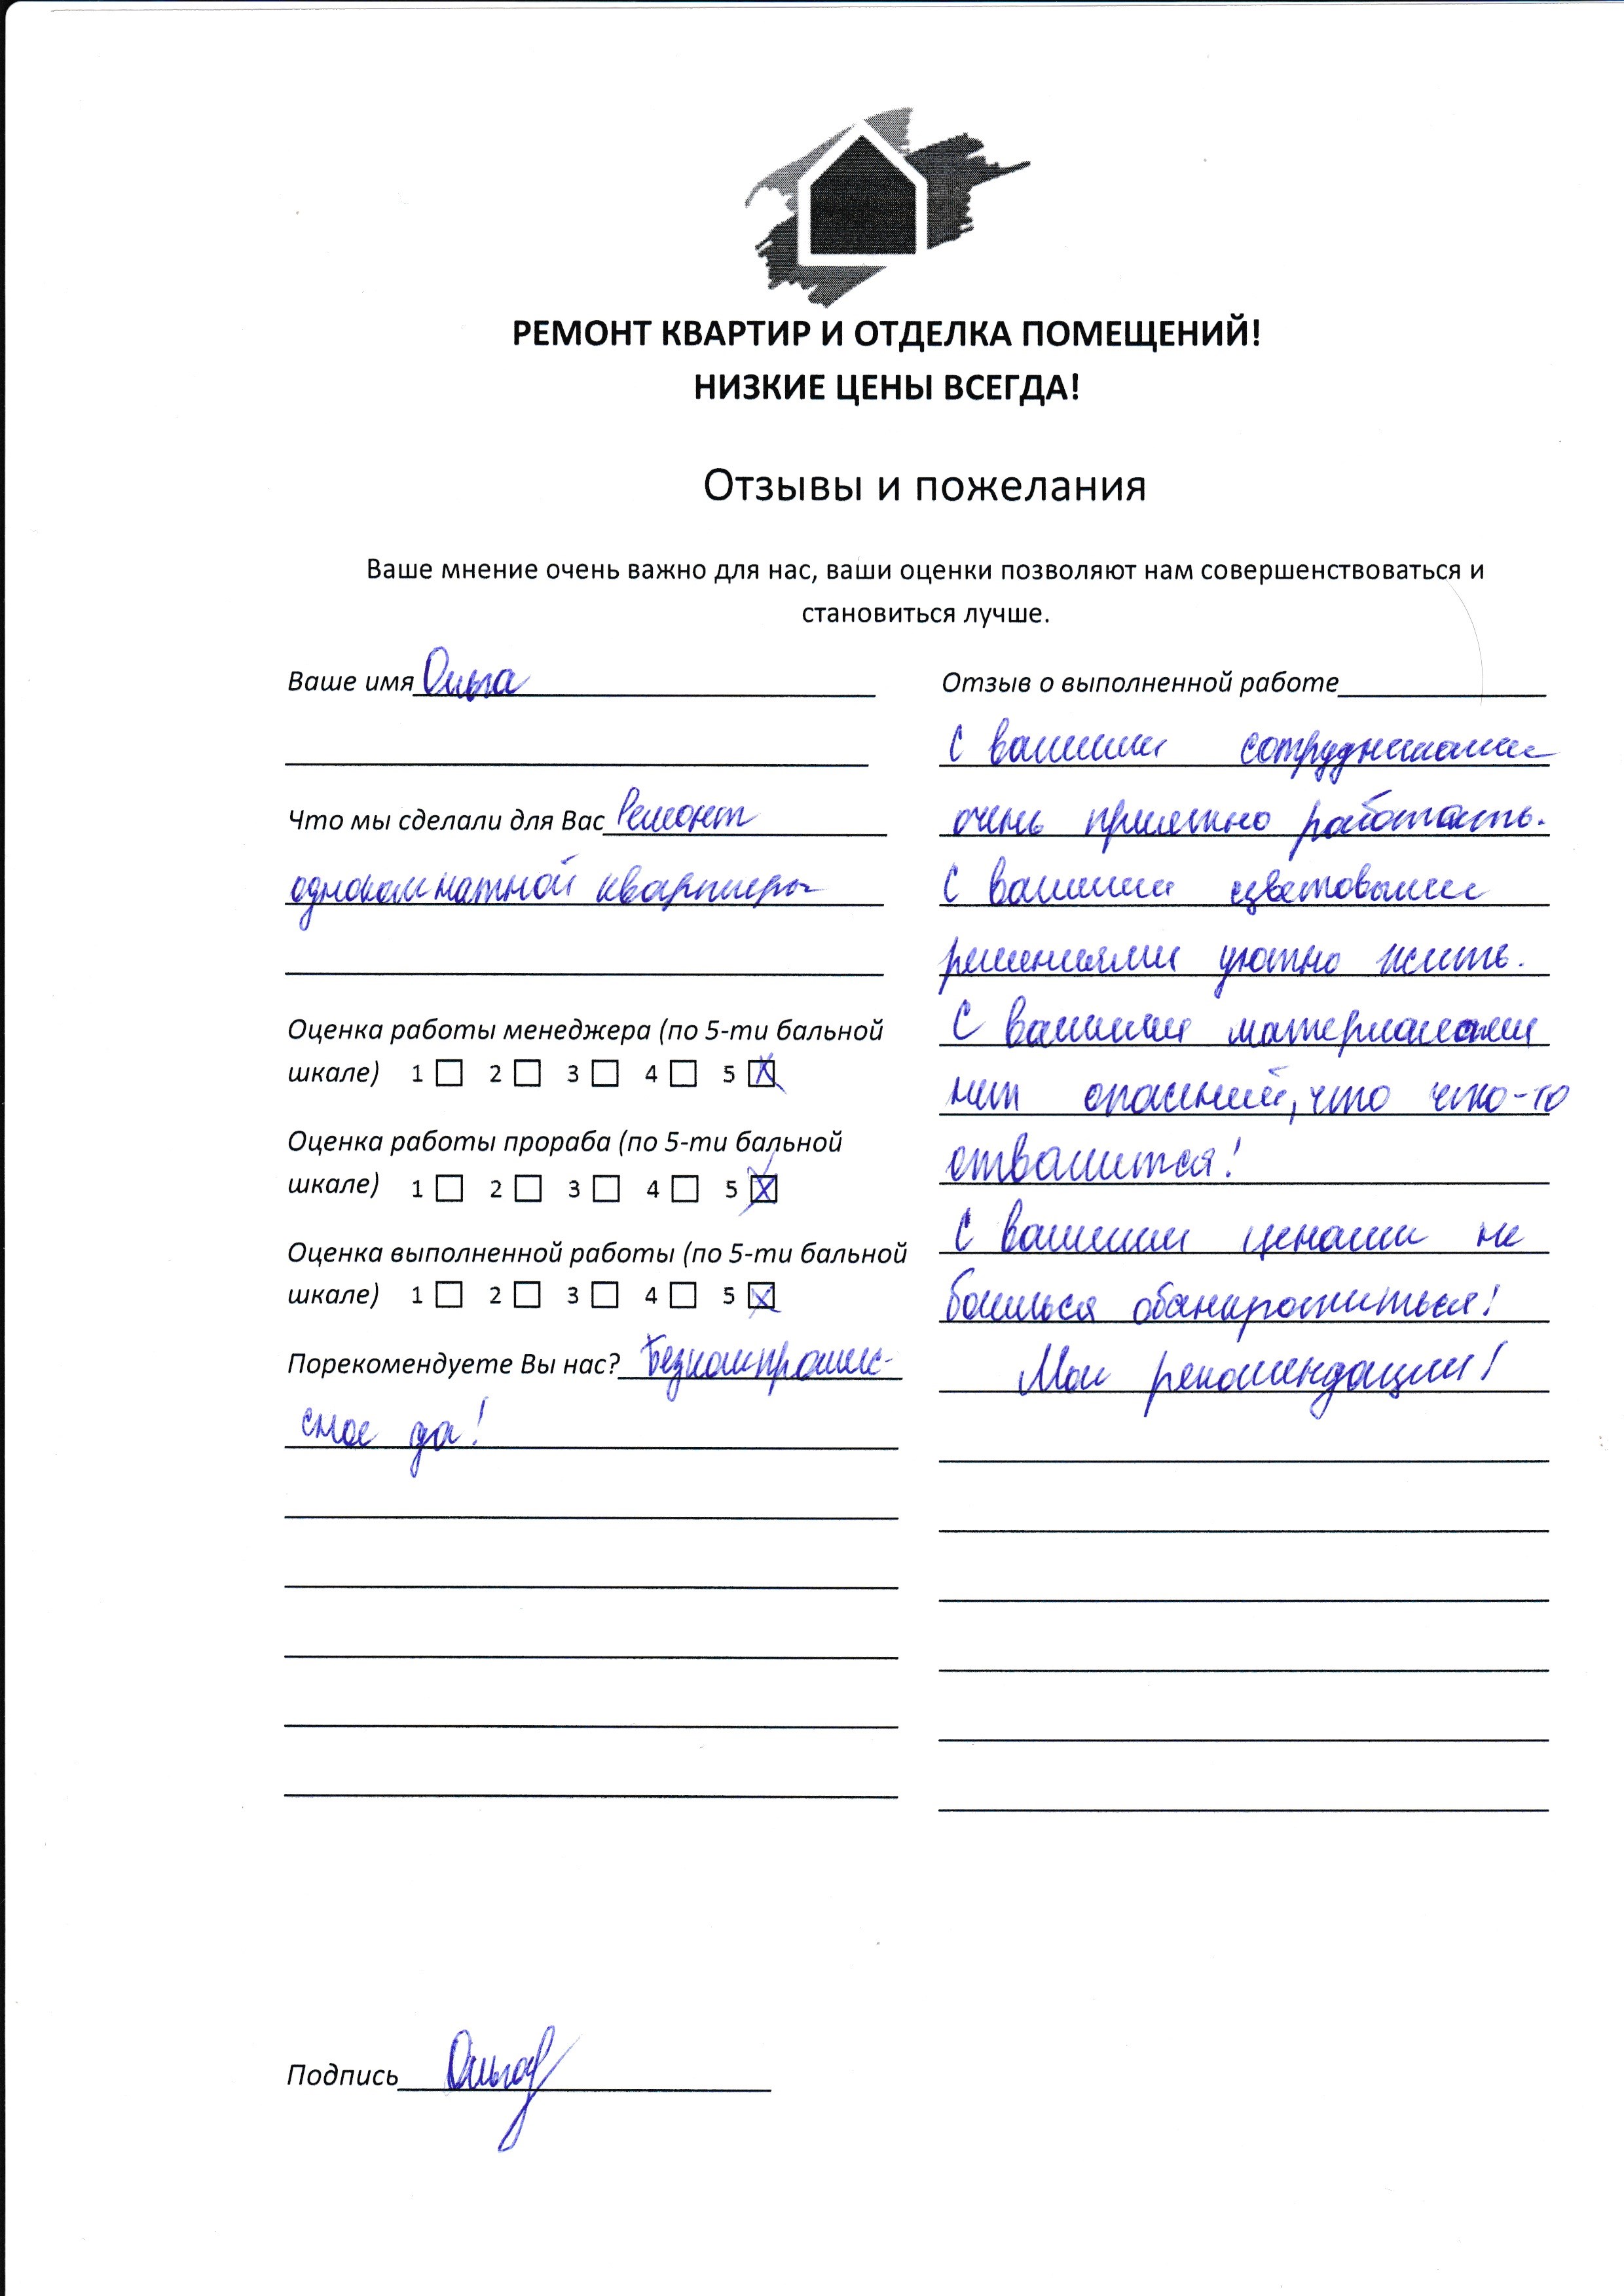 РЕМОНТ КВАРТИР И ОТДЕЛКА ПОМЕЩЕНИЙ!
НИЗКИЕ ЦЕНЫ ВСЕГДА!
Отзывы и пожелания
Ваше мнение очень важно для нас, ваши оценки позволяют нам совершенствоваться и
становиться лучше.
Ваше имя Ольга
Что мы сделали для Вас Ремонт
однокомнатной квартиры
Оценка работы менеджера (по 5-ти бальной
шкале) 1 2 3 4 5
Оценка работы прораба (по 5-ти бальной
шкале) 1 2 3 4 5
Оценка выполненной работы (по 5-ти бальной
шкале) 1 2 3 4 5
Порекомендуете Вы нас? Безкомпромис-
сное да!
Отзыв о выполненной работе
С вашими сотрудниками
очень приятно работать.
С вашими цветовыми
решениями уютно жить.
С вашими материалами
нет опасений, что что-то
отвалится!
С вашими ценами не
боишься обанкротиться!
Мои рекомендации!
Подпись Ольга